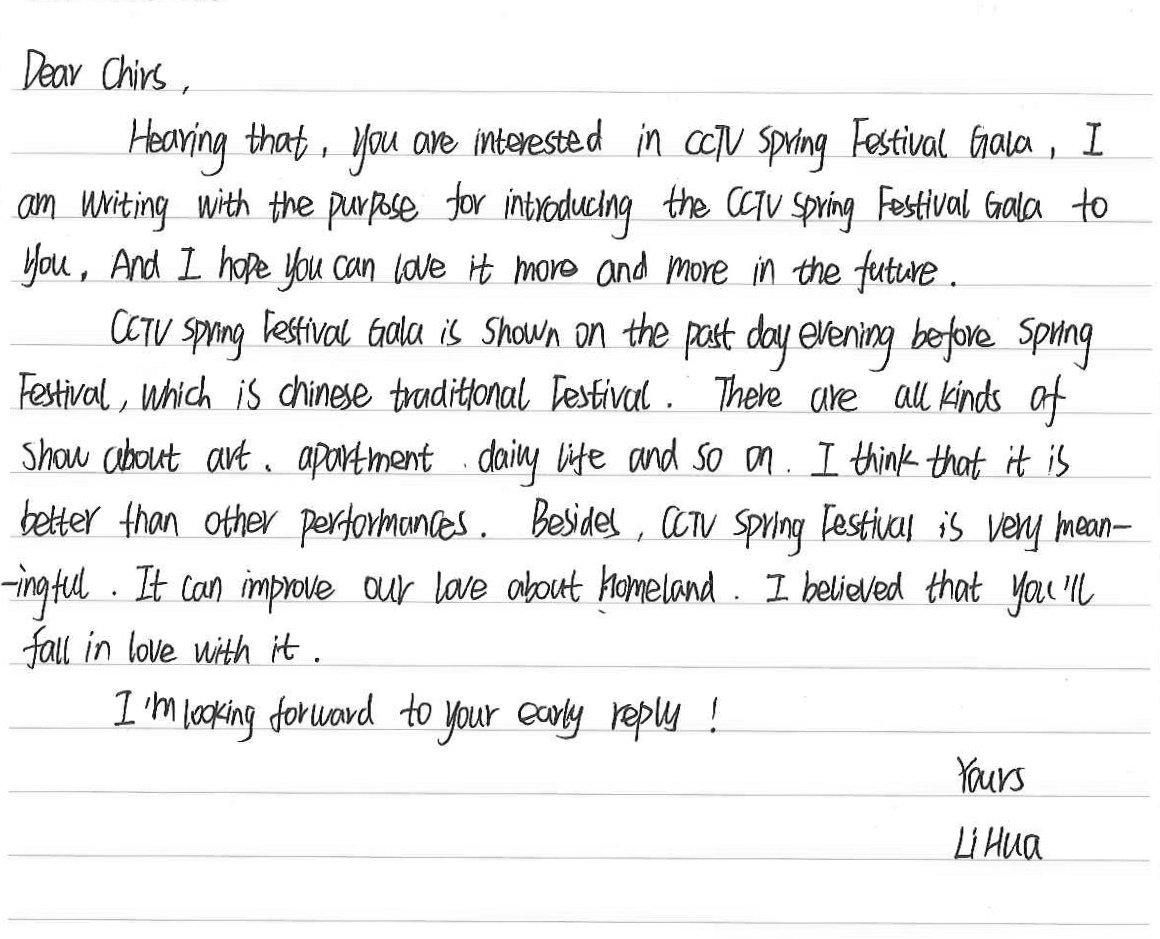 Dear Chirs,
Hearing that, you are interested in CCTV Spring Festival Gala, I
am writing with the purpose for introducing the CCTV Spring Festival Gala to
you, And I hope you can love it more and more in the future.
CCTV Spring Festival Gala is shown on the past day evening before Spring
Festival, which is chinese traditional Festival. There are all kinds of
show about art. apartment. daily life and so on. I think that it is
better than other performances. Besides, CCTV Spring Festival is very mean-
-ingful. It can improve our love about homeland. I believed that you'll
fall in love with it.
I'm looking forward to your early reply!
Yours
Li Hua